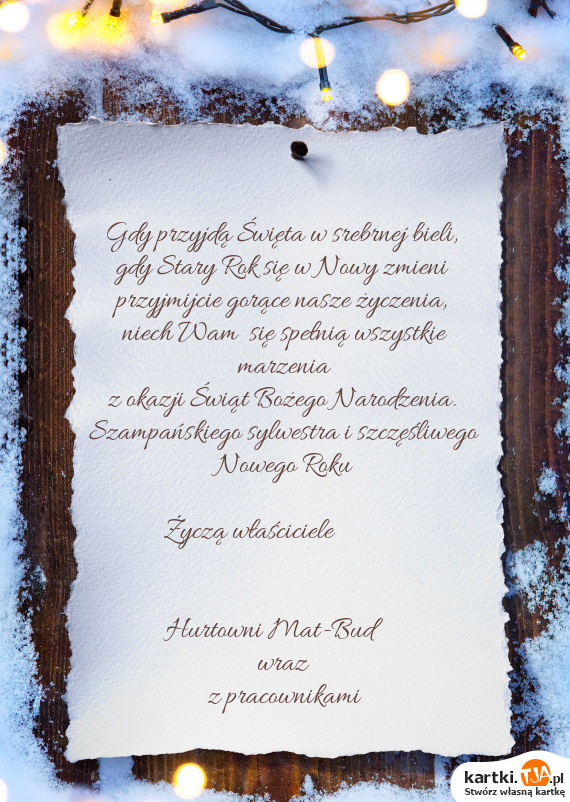 Gdy przyjdą Święta w srebrnej bieli,
gdy Stary Rok się w Nowy zmieni
przyjmijcie gorące nasze życzenia,
niech Wam się spełnią wszystkie
marzenia
z okazji Świąt Bożego Narodzenia.
Szampańskiego sylwestra i szczęśliwego
Nowego Roku
Życzą właściciele
Hurtowni Mat-Bud
wraz
z pracownikami
kartki.TJA.pl
Stwórz własną kartkę